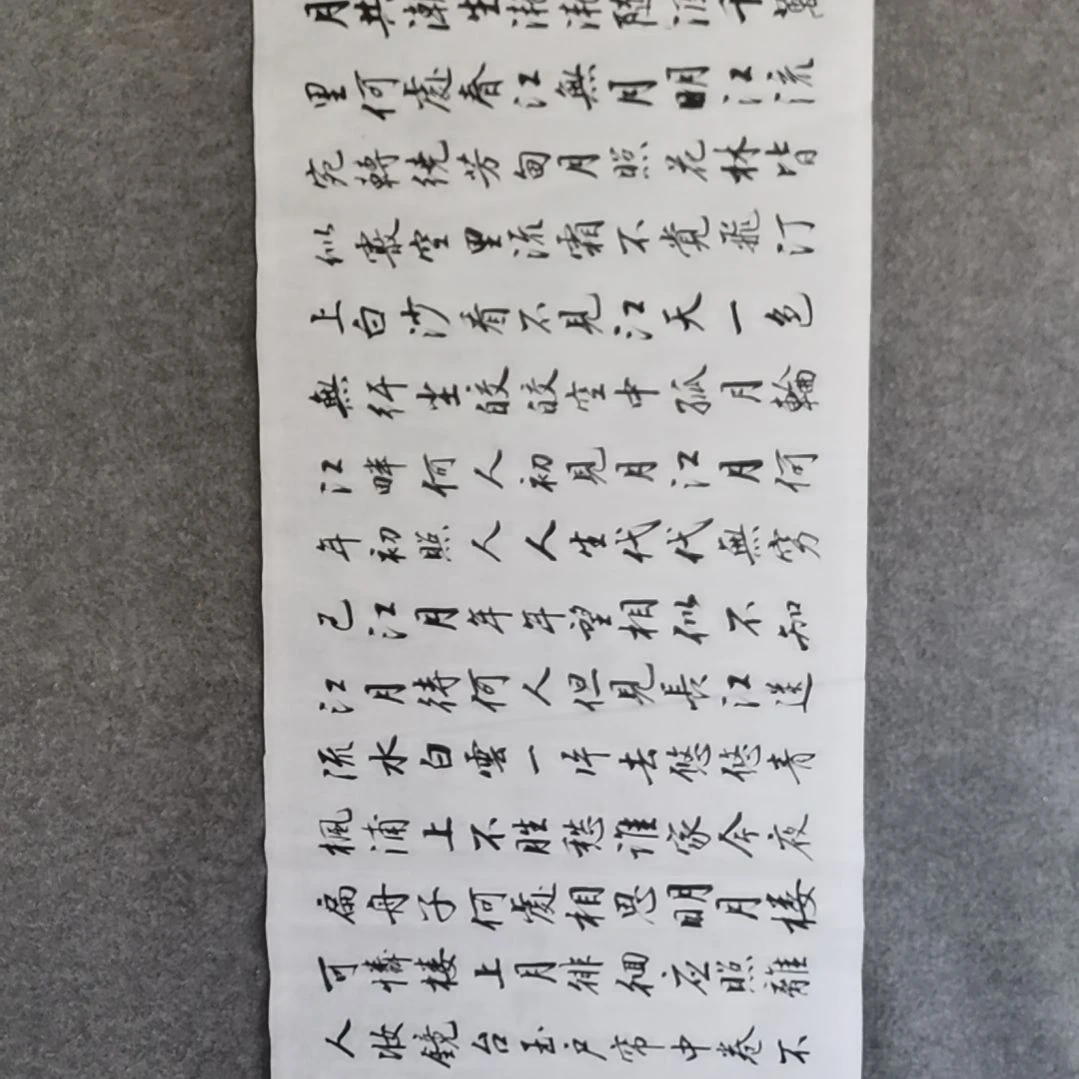 月共潮生隨波千萬
里何處春江無月明江流
宛轉繞芳甸月照花林皆
似霰空里流霜不覺飛汀
上白沙看不見江天一色
無纤尘皎皎空中孤月輪
江畔何人初見月江月何
年初照人人生代代無穷
已江月年年望相似不知
江月待何人但見長江送
流水白雲一片去悠悠青
楓浦上不胜愁谁家今夜
扁舟子何處相思明月楼
可憐楼上月徘徊应照離
人妝镜台玉户帘中卷不